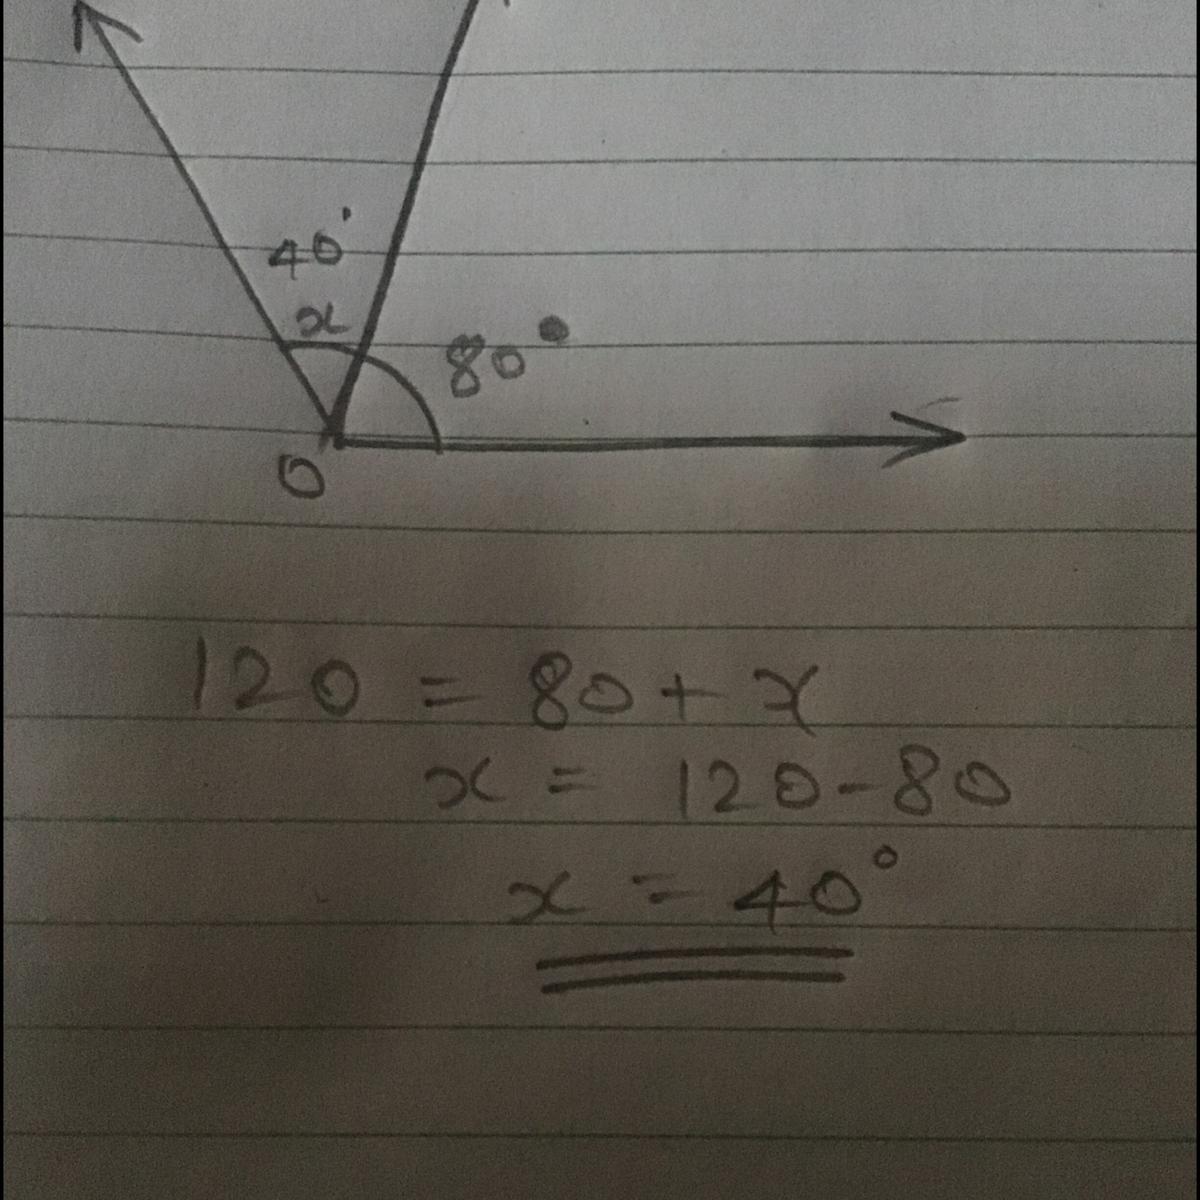 40°
x
80°
O
120 = 80 + x
x = 120 - 80
x = 40°